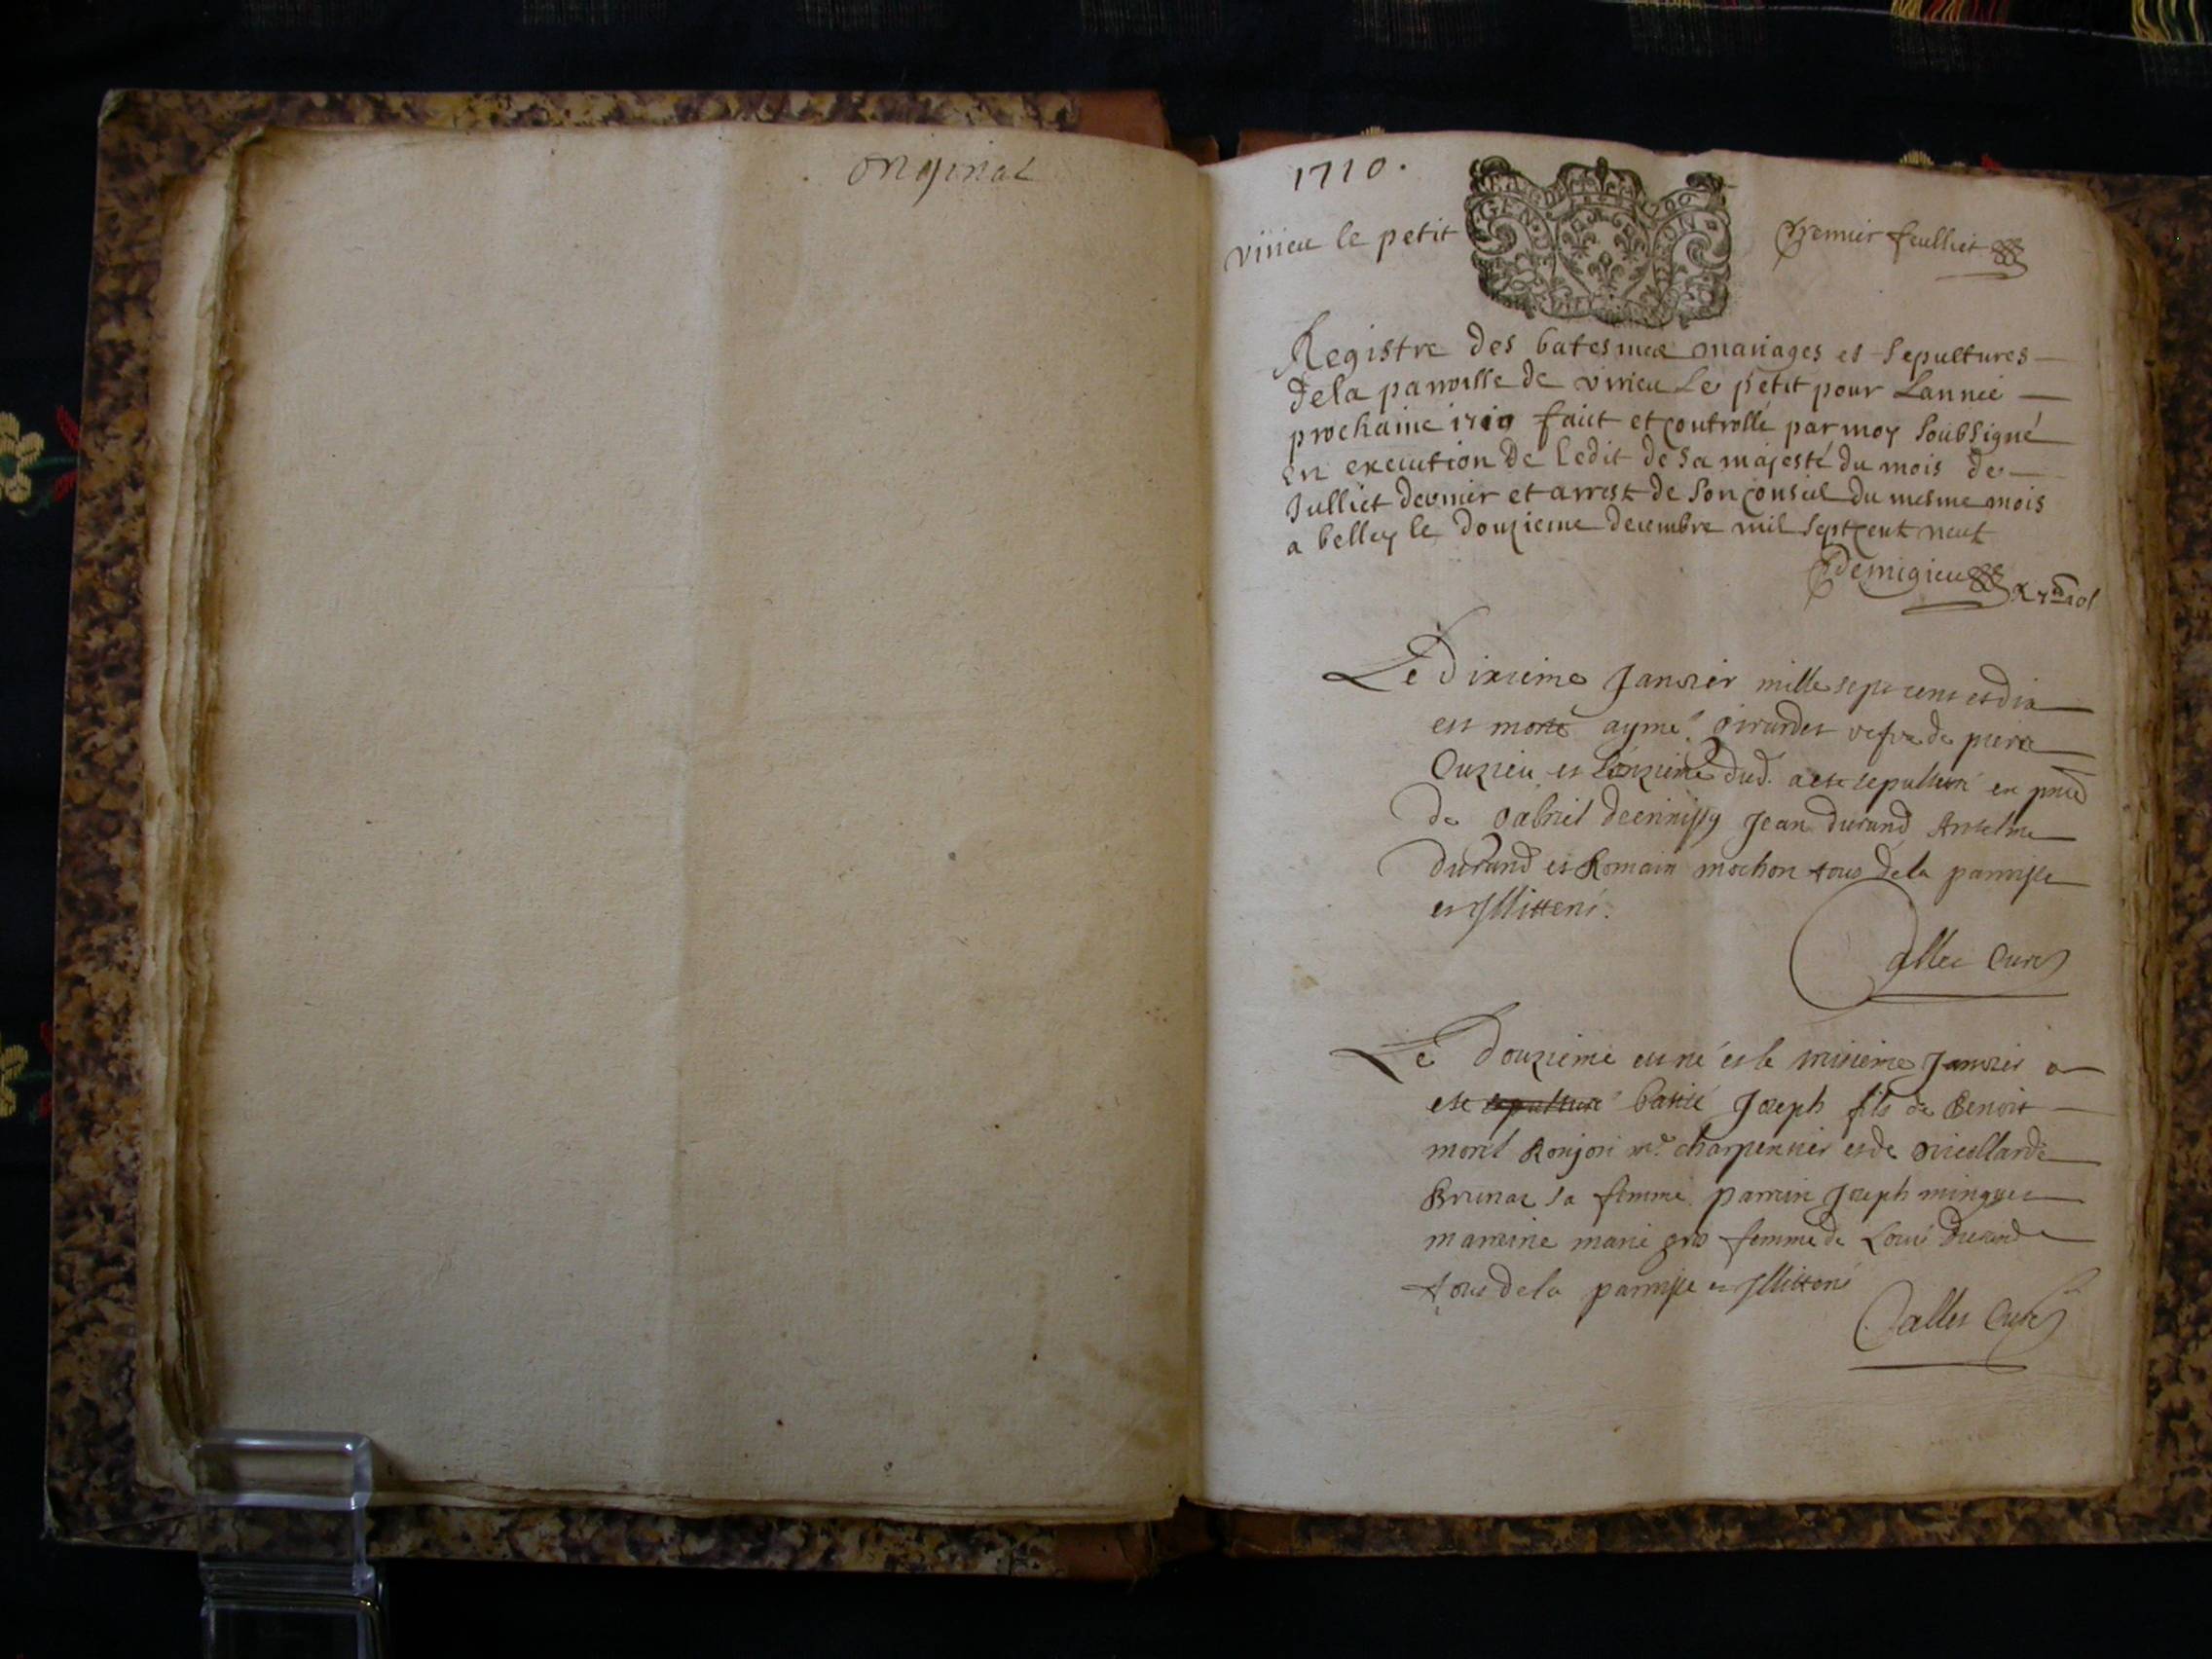 original
1710.
virieu le petit
GEN
premier feulliet
Registre des batesmes mariages et sepultures
de la parroisse de virieu le petit pour Lannée
prochaine 1710 faict et controllé par moy soubsigné
en execution de Ledit de sa majesté du mois de
Julliet dernier et arrest de son conseil du mesme mois
a belley le douzieme decembre mil sept cent neuf
Demigieu
Le Dixieme Janvier mille sept cent et dix
est morte aymé girardet vefve de pierre
Cuzieu et l'onzieme dud. a esté sepulturé en
de gabriel Jean durand Anselme
durand et Romain mochon tous de la parroisse
et Illitteré.
Le Douzieme est né et le treisieme Janvier a
esté sepulturé batisé Joseph fils de Benoit
morel charpentier et de
Brunat sa femme parrin Joseph minguet
marreine marie gro femme de Louis Durand
tous de la parroisse et Illitteré
Curé